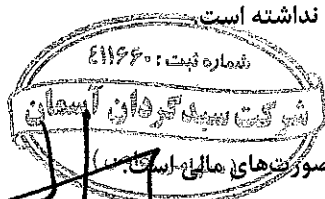 نداشته است.
شماره ثبت: ۴۱۱۶۶۰
شرکت سبدگردان آسمان
صورت‌های مالی است.